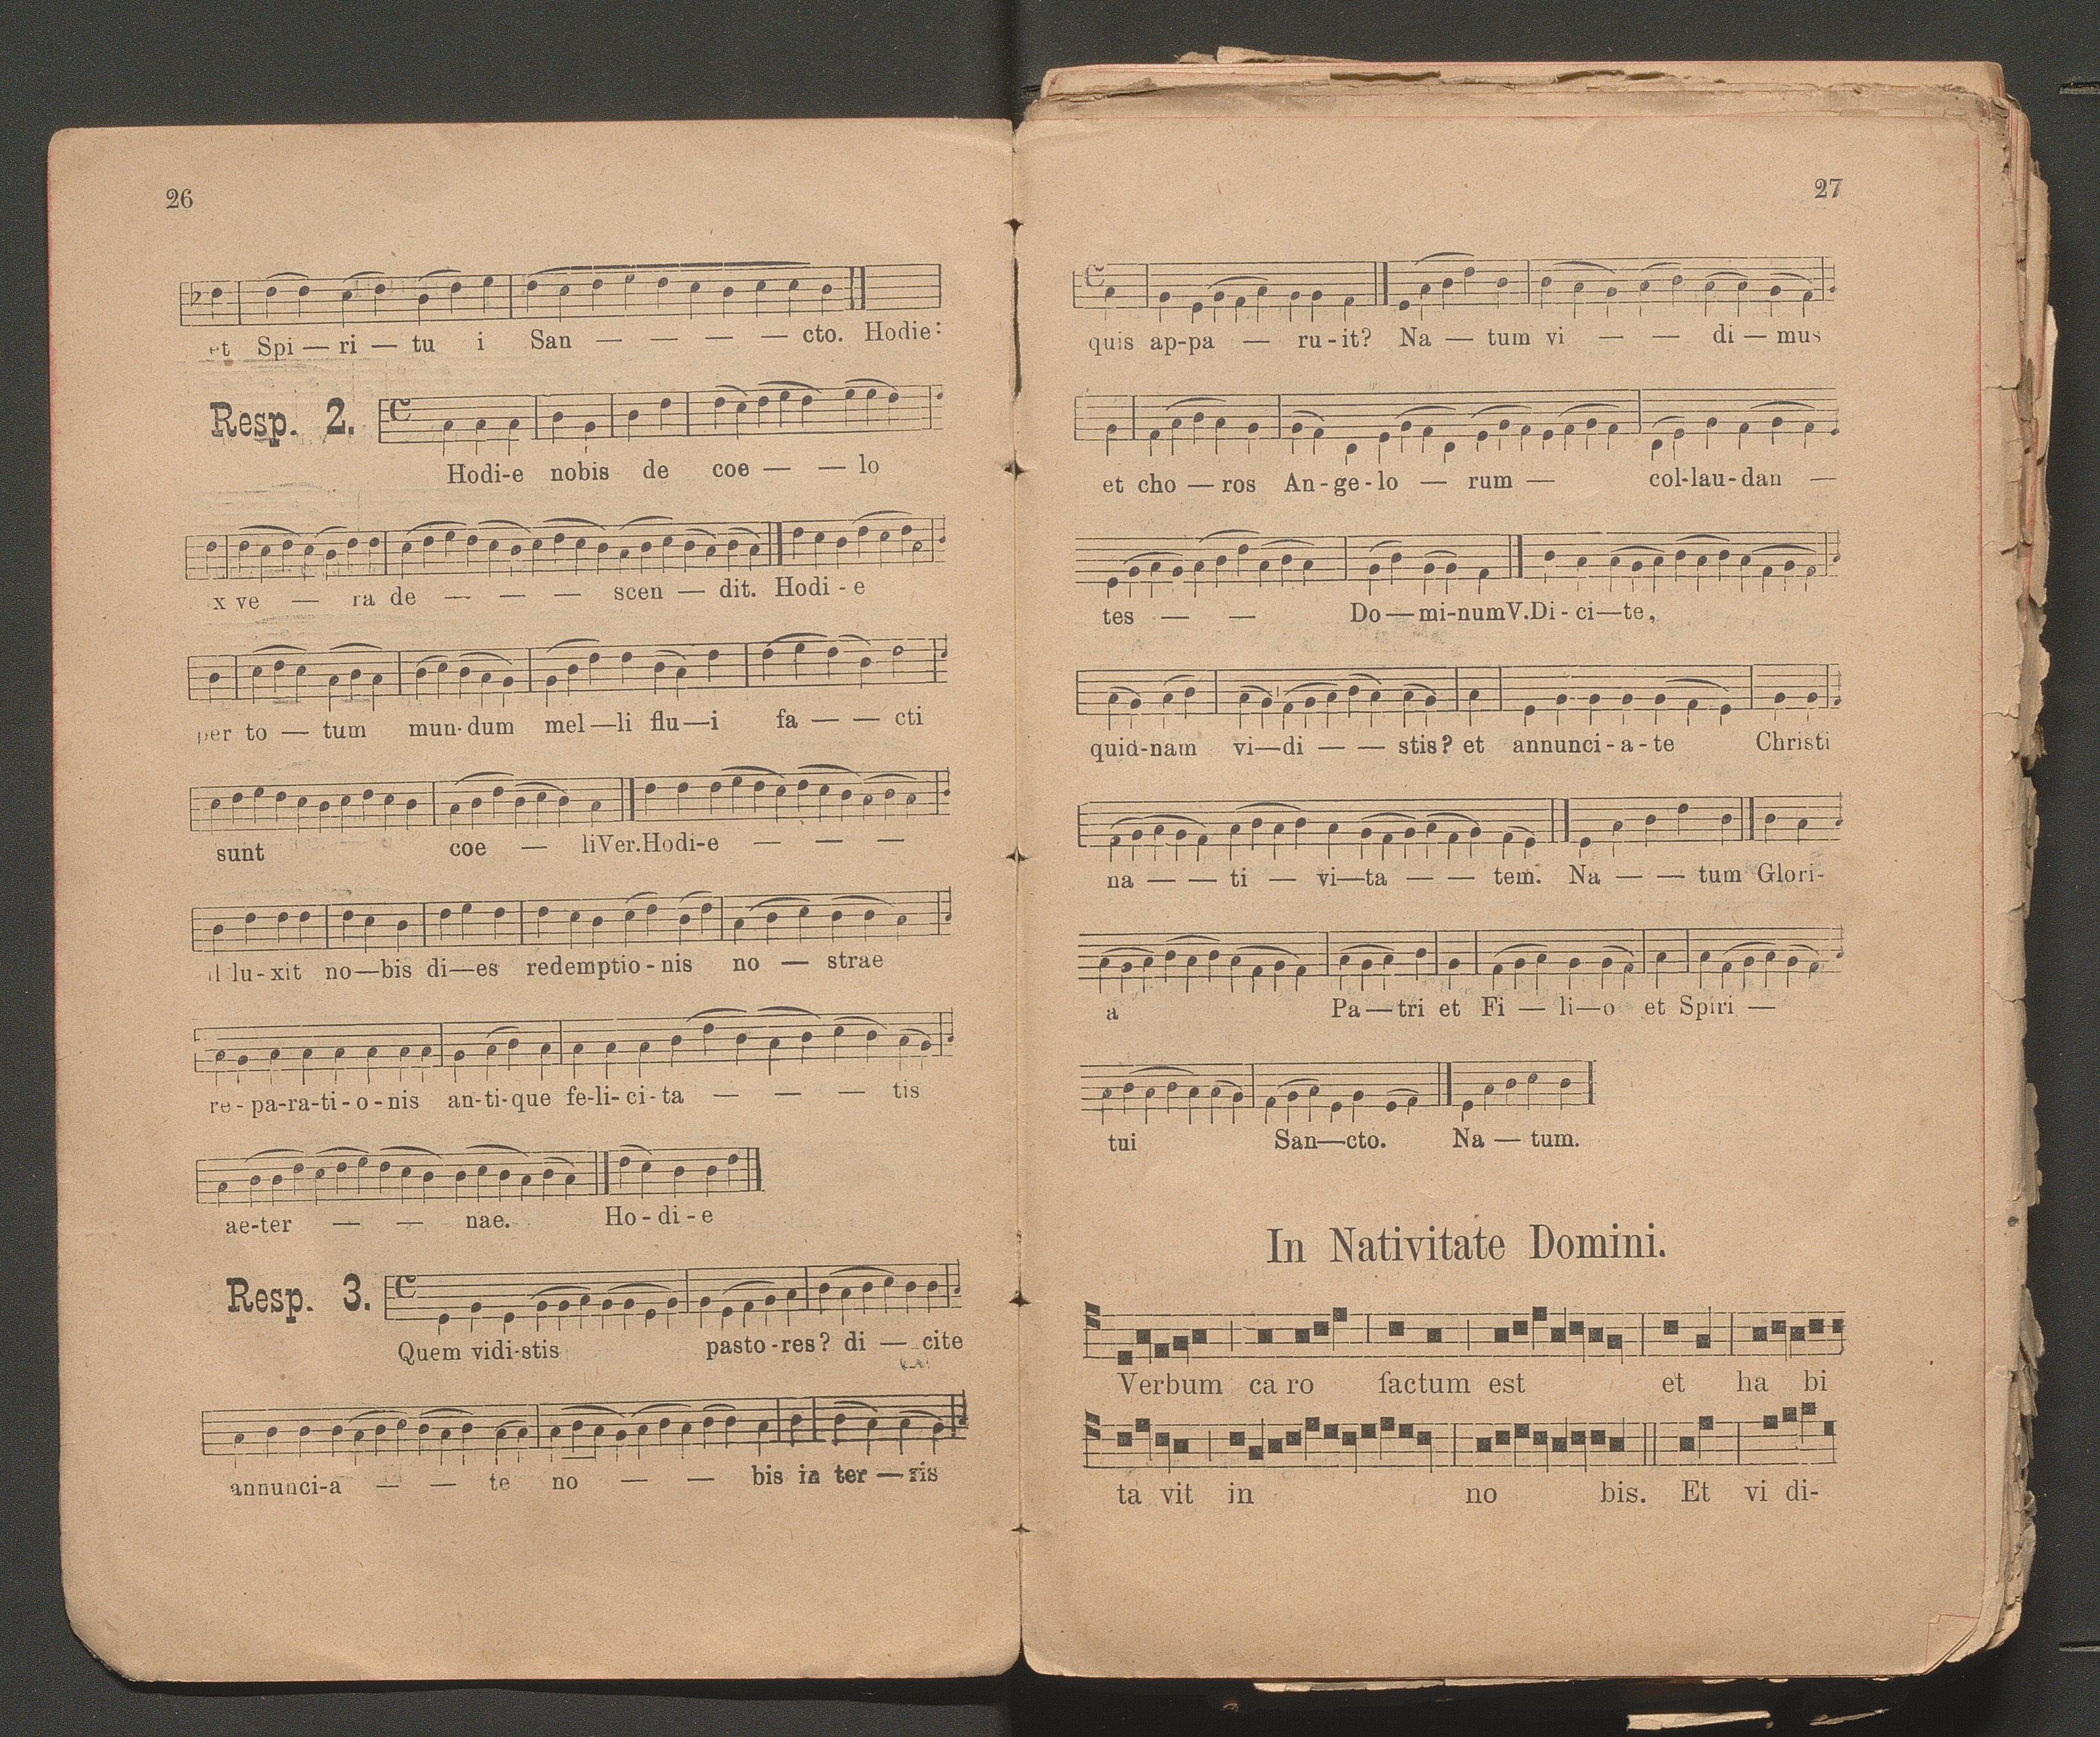 26
et Spi — ri — tu i San — — — — cto. Hodie:
Resp. 2.
Hodi-e nobis de coe — — lo
x ve — ra de — — — scen — dit. Hodi - e
per to — tum mun-dum mel — li flu — i fa — — cti
sunt coe — li Ver. Hodi-e — — —
il lu - xit no — bis di — es redemptio - nis no — strae
re - pa-ra-ti - o - nis an-ti-que fe-li- ci - ta — — — tis
ae-ter — — nae. Ho - di - e
Resp. 3.
Quem vidi-stis pasto - res? di — cite
annunci-a — — te no — — bis in ter — ris
27
quis ap-pa — ru - it? Na — tum vi — — di — mus
et cho — ros An - ge - lo — rum — col-lau-dan —
tes — — Do — mi-num V. Di - ci — te,
quid-nam vi — di — — stis? et annunci - a - te Christi
na — — ti — vi — ta — — tem. Na — — tum Glori-
a Pa — tri et Fi — li — o et Spiri —
tui San — cto. Na — tum.
In Nativitate Domini.
Verbum ca ro factum est et ha bi
ta vit in no bis. Et vi di-